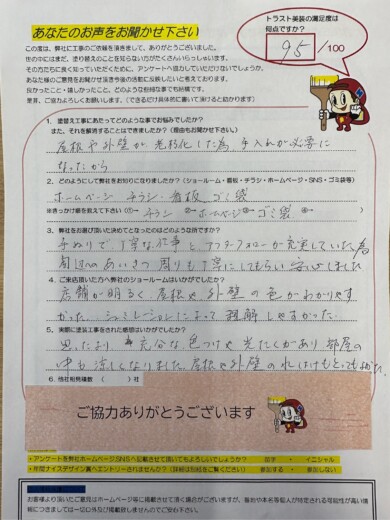 あなたのお声をお聞かせ下さい
トラスト美装の満足度は
何点ですか？
95/100
この度は、弊社に工事のご依頼を頂きまして、ありがとうございました。
世の中にはまだ、塗り替えのことを知らない方がたくさんいらっしゃいます。
その方たちに良く知っていただくために、アンケートへ協力していただけないでしょうか。
あなた様のご意見をお聞かせ頂き今後の活動に反映したいと考えております。
良かったこと・嬉しかったこと、どのような些細な事でも結構です。
是非、ご協力よろしくお願いします。(できるだけ具体的に書いて頂けると助かります)
1. 塗替え工事にあたってどのような事でお悩みでしたか？
また、それを解消することはできましたか？(理由もお聞かせ下さい。)
屋根や外壁が老朽化した為 手入れが必要に
なったから
2. どのようにして弊社をお知りになりましたか？(ショールーム・看板・チラシ・ホームページ・SNS・ゴミ袋等)
ホームページ チラシ・看板 ゴミ袋
※きっかけ順を教えて下さい ①ー チラシ ②ーホームページ ③ー ゴミ袋 ④ー
3. 弊社をお選び頂いた決めてとなったのはどのような点ですか？
手ぬりで、丁寧な仕事とアフターフォローが充実していた為
周辺へのあいさつ周りも丁寧にしてもらい 安心しました
4. ご来店頂いた方へ弊社のショールームはいかがでしたか？
店舗が明るく、屋根や外壁の色がわかりやす
かった。シュミレーションによって理解しやすかった。
5. 実際に塗装工事をされた感想はいかがでしたか？
思ったより 充分な色つけや光たくがあり 部屋の
中も涼しくなりました。屋根や外壁の水はけもとってもよかった。
6. 他社相見積数 ( )社
ご協力ありがとうございます
・アンケートを弊社ホームページ,SNSへ記載させて頂いてもよろしいでしょうか？ 苗字 ・ イニシャル
・年間ナイスデザイン賞へエントリーされませんか？(詳細は別紙をご覧ください) 参加する ・ 参加しない
お客様より頂いたご意見はホームページ等に掲載させて頂く場合がございますが、個別や本名等個人が特定される可能性が高い情
報につきましては一切公開及び掲載致しませんのでご安心下さい。